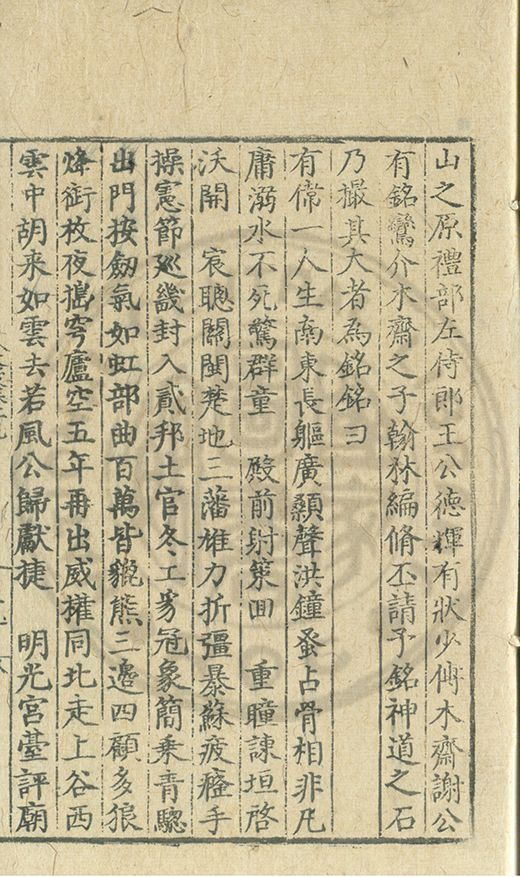 山之原禮部左侍郎王公德輝有狀少傅木齋謝公
有銘鸞介木齋之子翰林編脩丕請予銘神道之石
乃撮其大者為銘銘曰
有偉一人生南東長軀廣顙聲洪鐘蚤占骨相非凡
庸溺水不死驚群童　殿前射策回　重瞳諫垣啓
沃開　宸聰關閩楚地三藩雄力折彊暴蘇疲癃手
操憲節廵畿封入貳邦土官冬工豸冠象簡乗青驄
出門按劒氣如虹部曲百萬皆貔熊三邊四顧多狼
烽銜枚夜擣穹廬空五年再出威權同北走上谷西
雲中胡来如雲去若風公歸獻捷　明光宮臺評廟